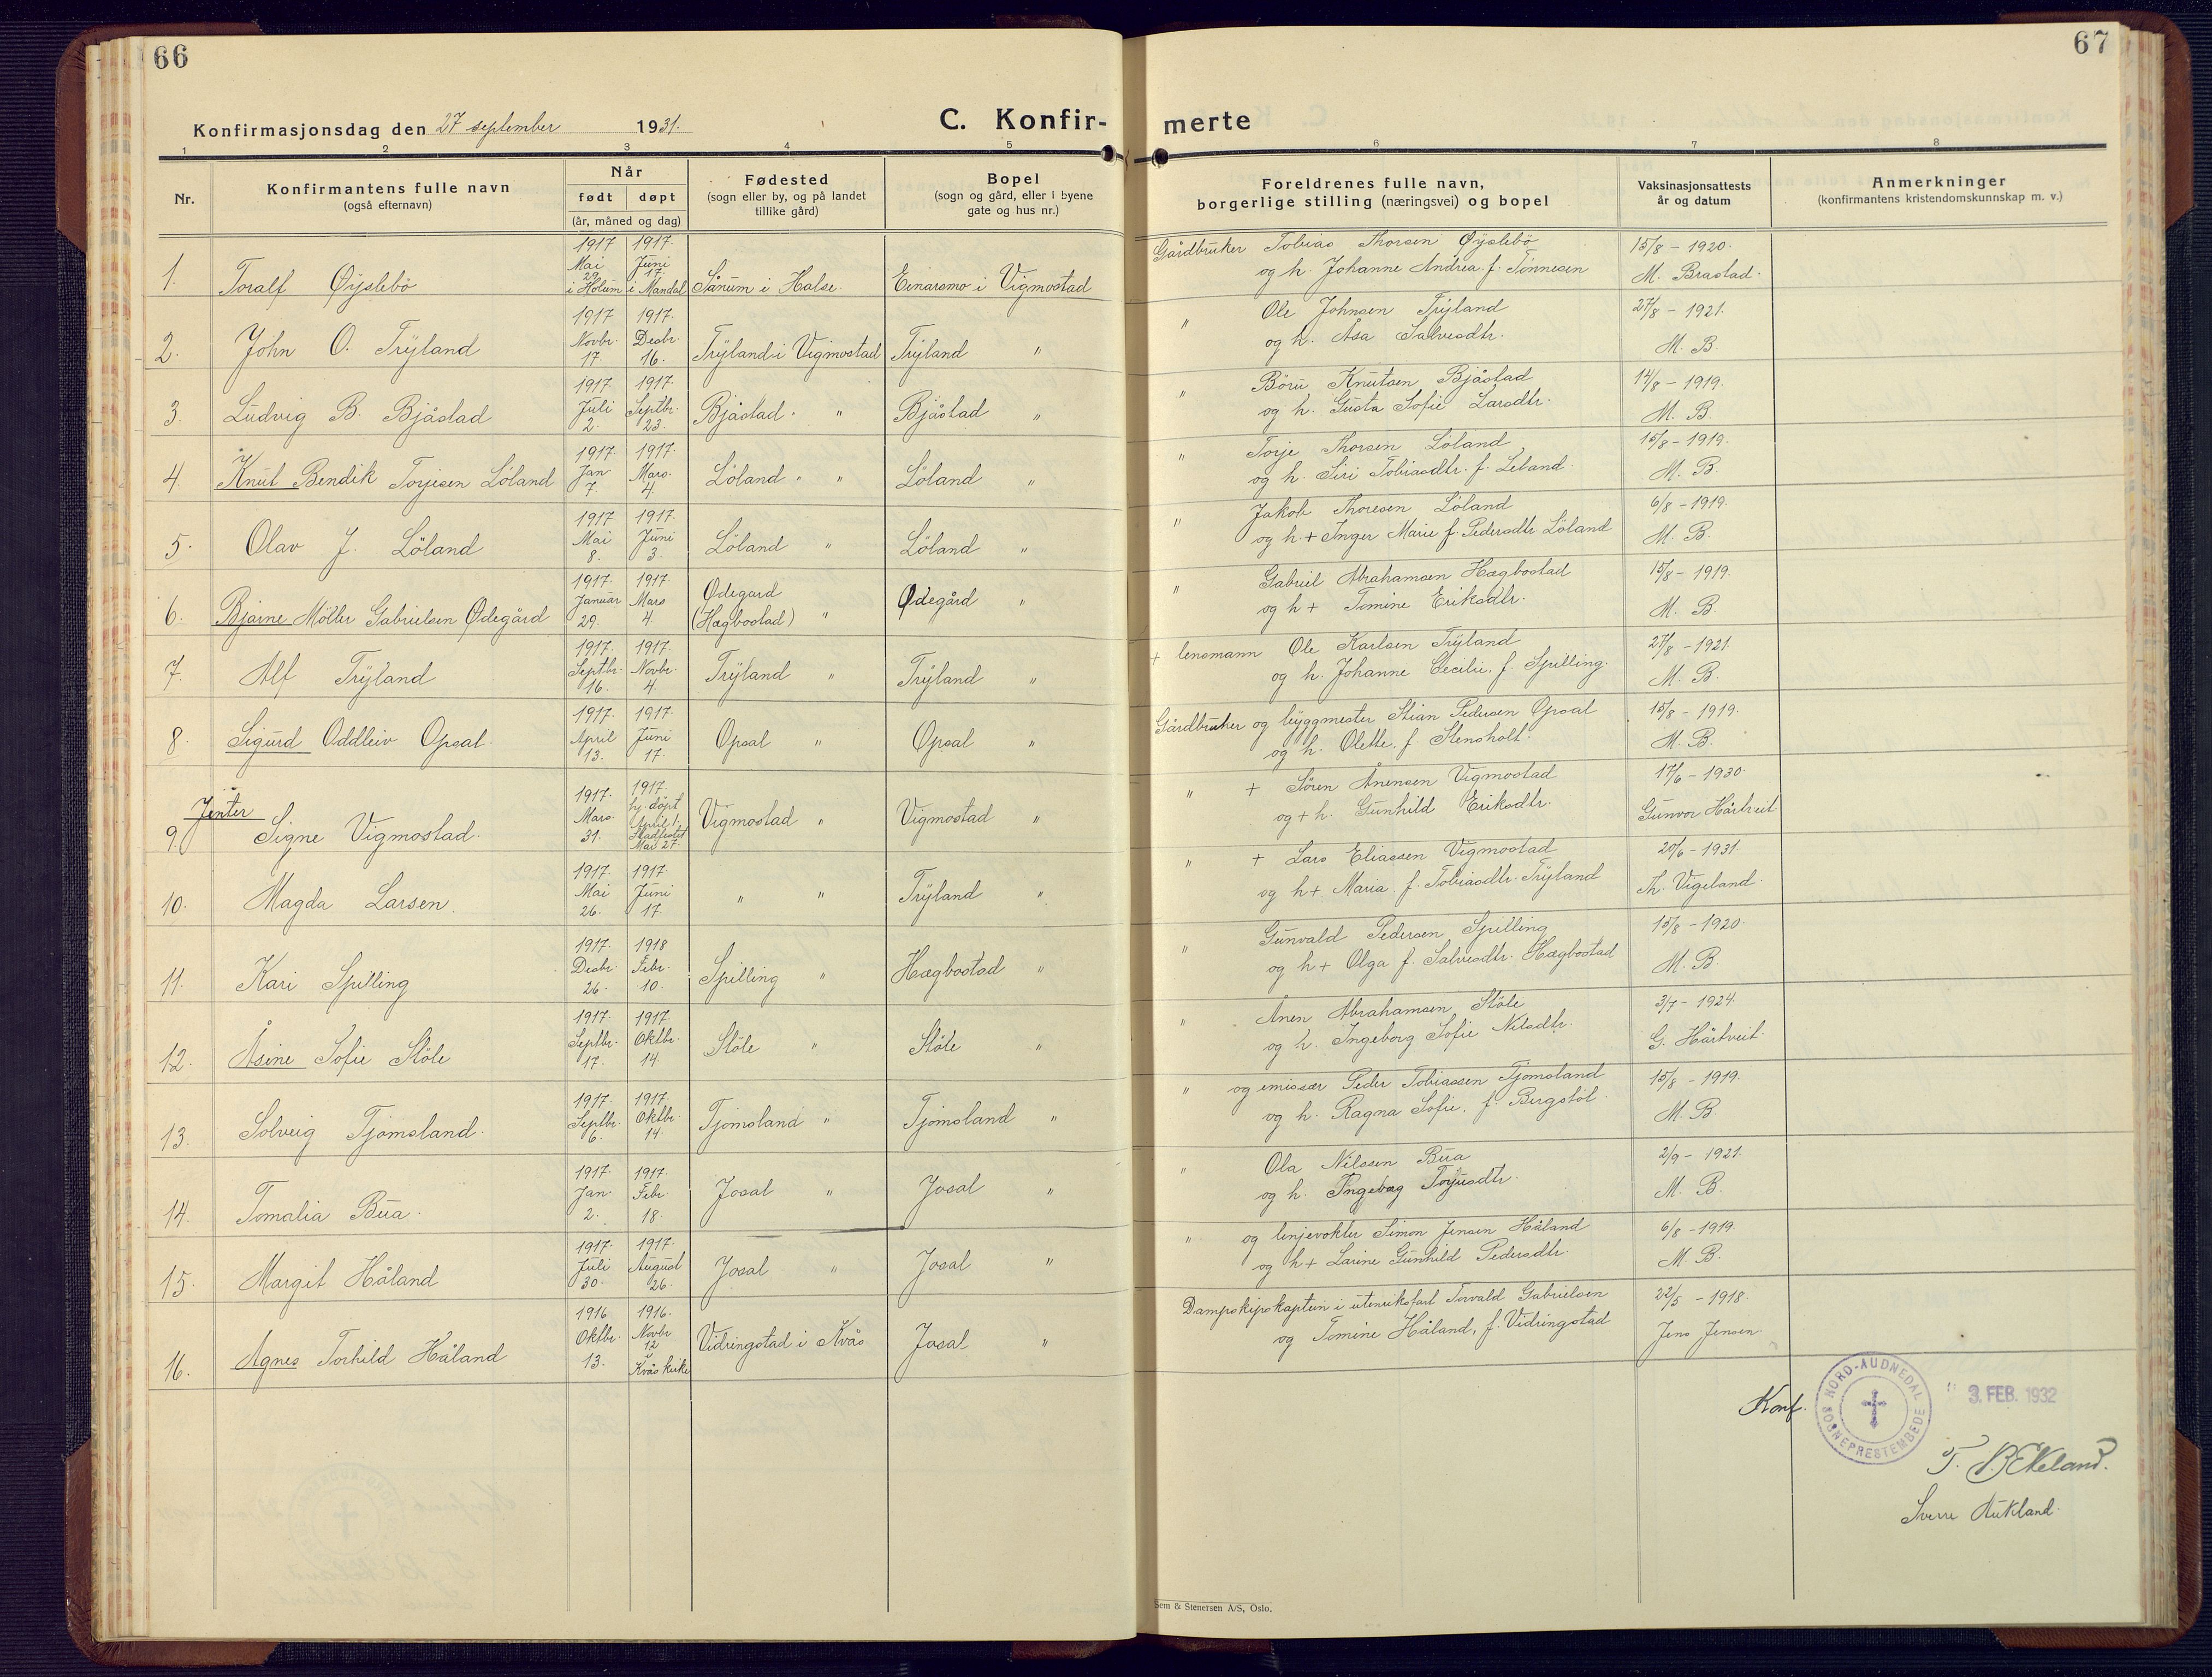 66
67
Konfirmasjonsdag den 27 september 1931.
C. Konfir-
merte
1 2 3 4 5 6 7 8
Nr.
Konfirmantens fulle navn
(også efternavn)
Når
født døpt
(år, måned og dag)
Fødested
(sogn eller by, og på landet
tillike gård)
Bopel
(sogn og gård, eller i byene
gate og hus nr.)
Foreldrenes fulle navn,
borgerlige stilling (næringsvei) og bopel
Vaksinasjonsattests
år og datum
Anmerkninger
(konfirmantens kristendomskunnskap m. v.)
1. Toralf Øyslebö 1917 Mai 29. i Holum 1917. Juni 17. i Mandal Sånum i Halse. Einarsmo i Vigmostad
Gårdbruker Tobias Thorsen Øyslebö 15/8 - 1920.
og h. Johanne Andrea f. Tönnesen M. Brastad.
2. John O. Tryland 1917 Novbr. 17. 1917. Desbr. 16. Tryland i Vigmostad Tryland "
" Ole Johnsen Tryland 27/8 - 1921.
og h. Åsa Salvesdtr. M. B.
3. Ludvig B. Bjåstad 1917. Juli 2. 1917. Septbr. 23. Bjåstad. " Bjåstad "
" Böru Knutsen Bjåstad 14/8 - 1919.
og h. Gusta Sofie Larsdtr. M. B.
4. Knut Bendik Torjesen Löland 1917. Jan. 7. 1917. Mars. 4. Löland " " Löland "
" Torje Thorsen Löland 15/8 - 1919.
og h. Siri Tobiasdtr. f. Leland. M. B.
5. Olav J. Löland 1917 Mai 8. 1917. Juni 3. Löland " Löland "
" Jakob Thoresen Löland 6/8 - 1919.
og h + Inger Marie f. Pedersdtr. Löland M. B.
6. Bjarne Möller Gabrielsen Ødegård 1917. Januar 29. 1917. Mars 4. Ødegard (Hægbostad) " Ødegård "
" Gabriel Abrahamsen Hægbostad 15/8 - 1919.
og h + Tomine Eriksdtr. M. B.
7. Alf Tryland 1917. Septbr. 16. 1917. Novbr. 4. Tryland " Tryland "
+ lensmann Ole Karlsen Tryland 27/8 - 1921.
og h. Johanne Cecilie. f. Spilling. M. B.
8. Sigurd Oddleiv Opsal. 1917. April 13. 1917. Juni 17. Opsal " Opsal "
Gårdbruker og byggmester Stian Pedersen Opsal 15/8 - 1919.
og h. Olette. f. Stensholt. M. B.
Jenter
9. Signe Vigmostad. 1917. Mars. 31. 1917. hj. döpt April 1. Stadfestet Mai 27. Vigmostad " Vigmostad "
" + Sören Ånensen Vigmostad 17/6 - 1930.
og + h. Gunhild Eriksdtr. Gunvor Hårtveit
10. Magda Larsen. 1917. Mai 26. 1917. Juni 17. " " Tryland "
" + Lars Eliassen Vigmostad 20/6 - 1931.
og h + Maria f. Tobiasdtr. Tryland Th. Vigeland.
11. Kari Spilling 1917. Desbr. 26. 1918 Febr. 10. Spilling " Hægbostad "
" Gunvald Pedersen Spilling 15/8 - 1920.
og h + Olga f. Salvesdtr. Hægbostad M. B.
12. Åsine Sofie Stöle 1917. Septbr. 17. 1917. Oktbr. 14. Stöle " Stöle "
" Ånen Abrahamsen Stöle 3/7 - 1924.
og h. Ingeborg Sofie Nilsdtr. G. Hårtveit.
13. Solveig Tjomsland. 1917. Septbr. 6. 1917. Oktbr. 14. Tjomsland " Tjomsland "
" og emissær Peder Tobiassen Tjomsland 15/8 - 1919.
og h. Ragna Sofie. f. Bergstöl. M. B.
14. Tomalia Bua. 1917. Jan. 2. 1917. Febr. 18. Josal " Josal "
" Ola Nilssen Bua 2/9 - 1921.
og h. Ingeborg Torjusdtr. M. B.
15. Margit Håland 1917. Juli 30. 1917. August 26. Josal " Josal "
" og linjevokter Simon Jensen Håland 6/8 - 1919.
og h + Larine Gunhild Pedersdtr. M. B.
16. Agnes Torhild Håland 1916 Oktbr. 13. 1916. Novbr 12 i Kvås kirke Vidringstad i Kvås Josal "
Dampskipskaptein i utenriksfart Torvald Gabrielsen 22/5 - 1918.
og Tomine Håland, f. Vidringstad Jens Jensen
Konf.
NORD-AUDNEDAL SOGNEPRESTEMBEDE
3. FEB. 1932
T. B. Ekeland.
Sverre Aukland.
Sem & Stenersen A/S, Oslo.